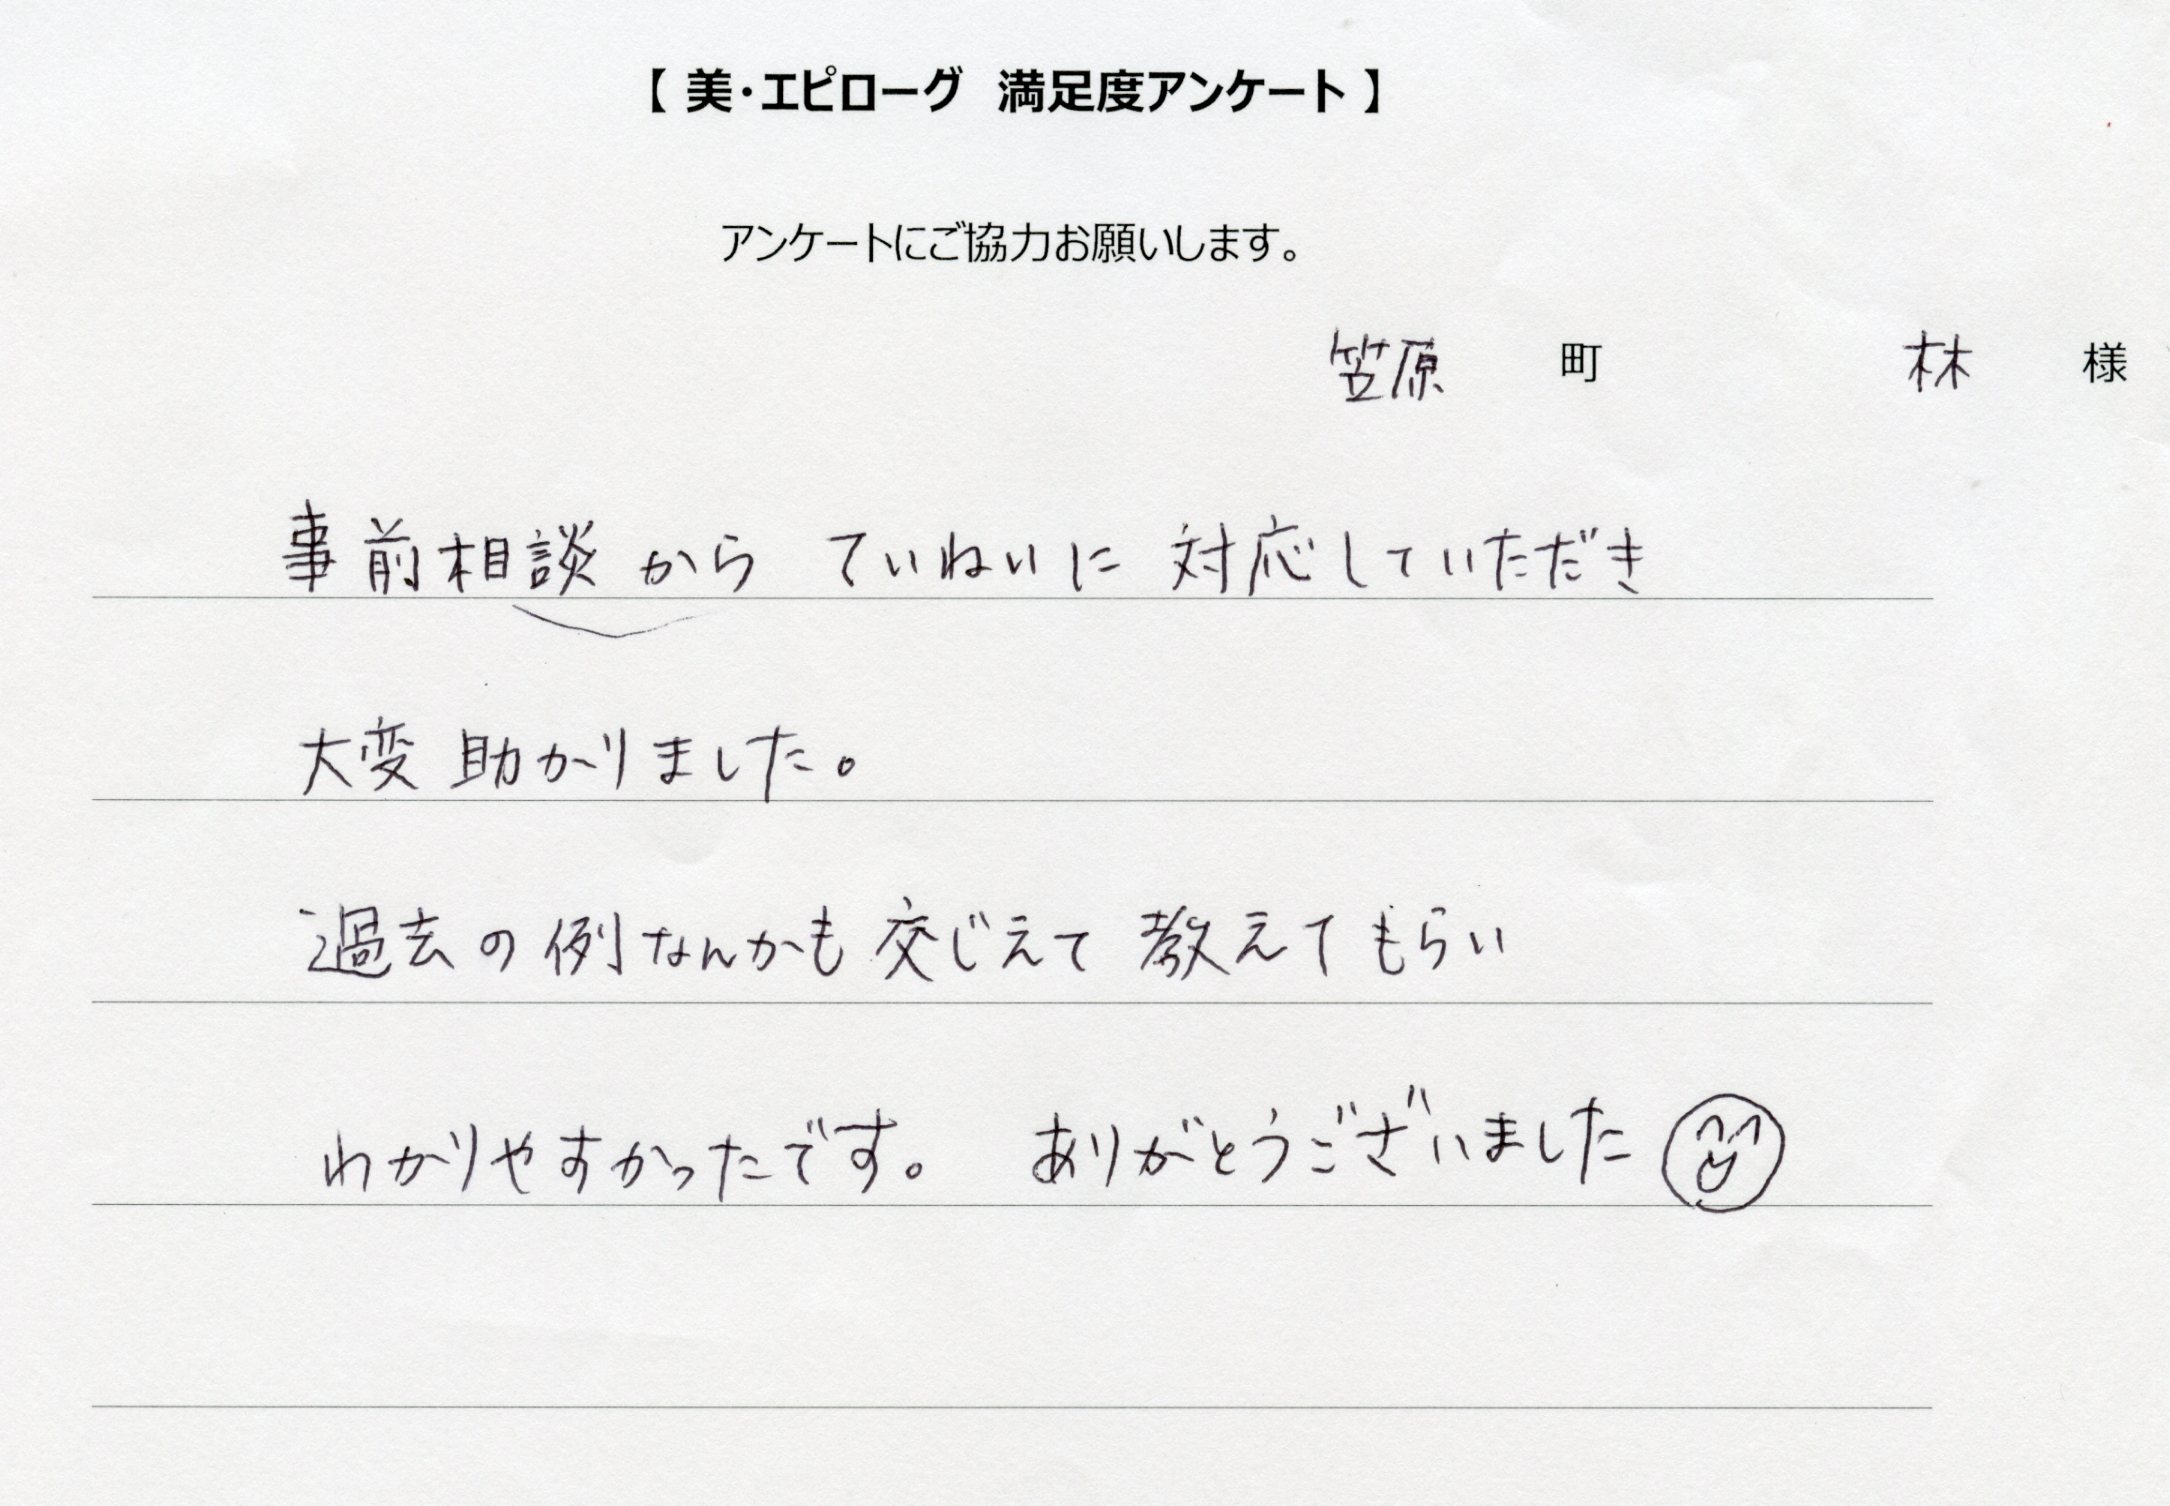 【 美・エピローグ 満足度アンケート 】
アンケートにご協力お願いします。
笠原 町 林 様
事前相談から ていねいに 対応していただき
大変 助かりました。
過去の例なんかも交じえて 教えてもらい
わかりやすかったです。 ありがとうございました